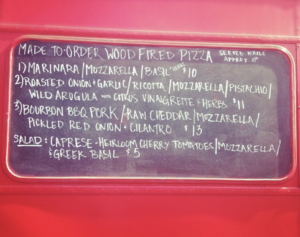 MADE TO-ORDER WOOD FIRED PIZZA
1) MARINARA/MOZZARELLA/BASIL $10
2) ROASTED ONION + GARLIC/RICOTTA/MOZZARELLA/PISTACHIO/
WILD ARUGULA CITRUS VINAIGRETTE + HERBS $11
3) BOURBON BBQ PORK/RAW CHEDDAR/MOZZARELLA/
PICKLED RED ONION + CILANTRO $13
SALAD: CAPRESE - HEIRLOOM CHERRY TOMATOES/MOZZARELLA/
& GREEK BASIL $5